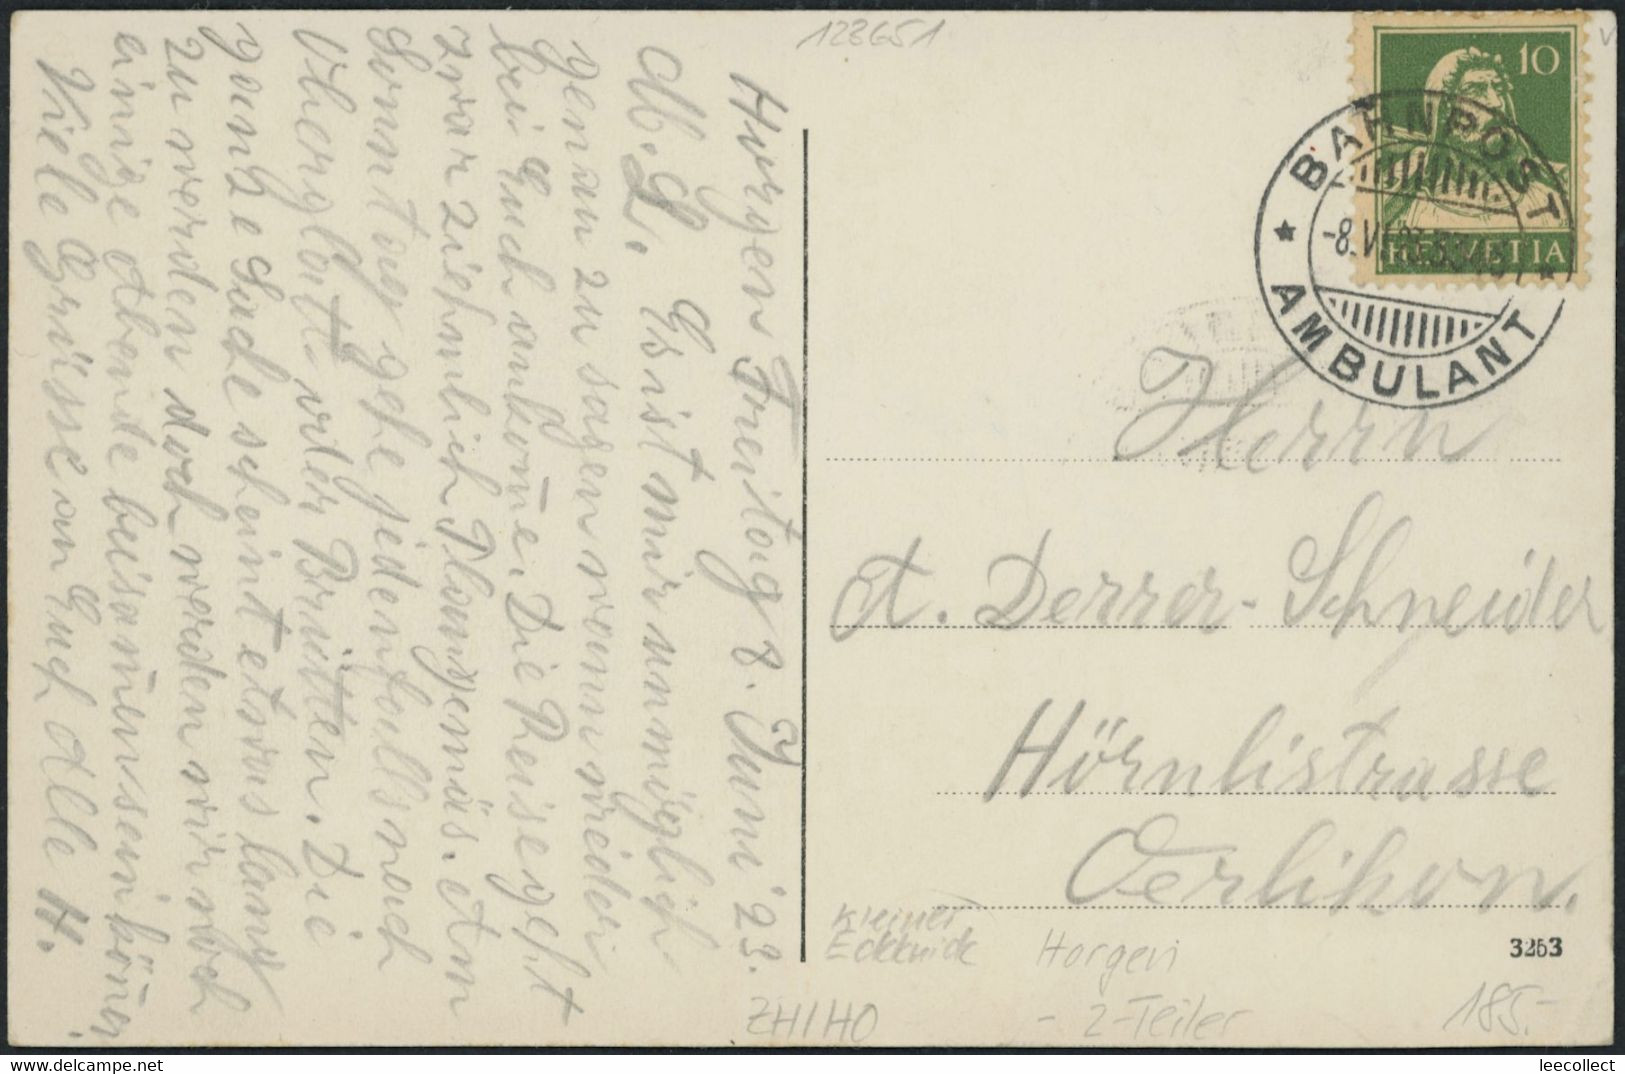 123651
Horgen Freitag 8. Juni '23.
M. L. Es ist mir unmöglich
genau zu sagen wann wieder
bei Euch ankom̄e. Die Reise geht
zwar ziehmlich Plangemäs. Am
Sonntag gehe jedenfalls nach
Oberglatt oder Brütten. Die
ganze Sache scheint etwas lang
zu werden doch werden wir noch
einige Abende beisam̄en sein kön̄en.
Viele Grüsse an Euch Alle H.
10
HELVETIA
BAHNPOST
-8.VI.23.
AMBULANT
Herrn
A. Derrer-Schneider
Hörnlistrasse
Oerlikon.
kleiner
Eckknick
Horgen
3263
ZH/HO
- 2-Teiler
185.-
leecollect